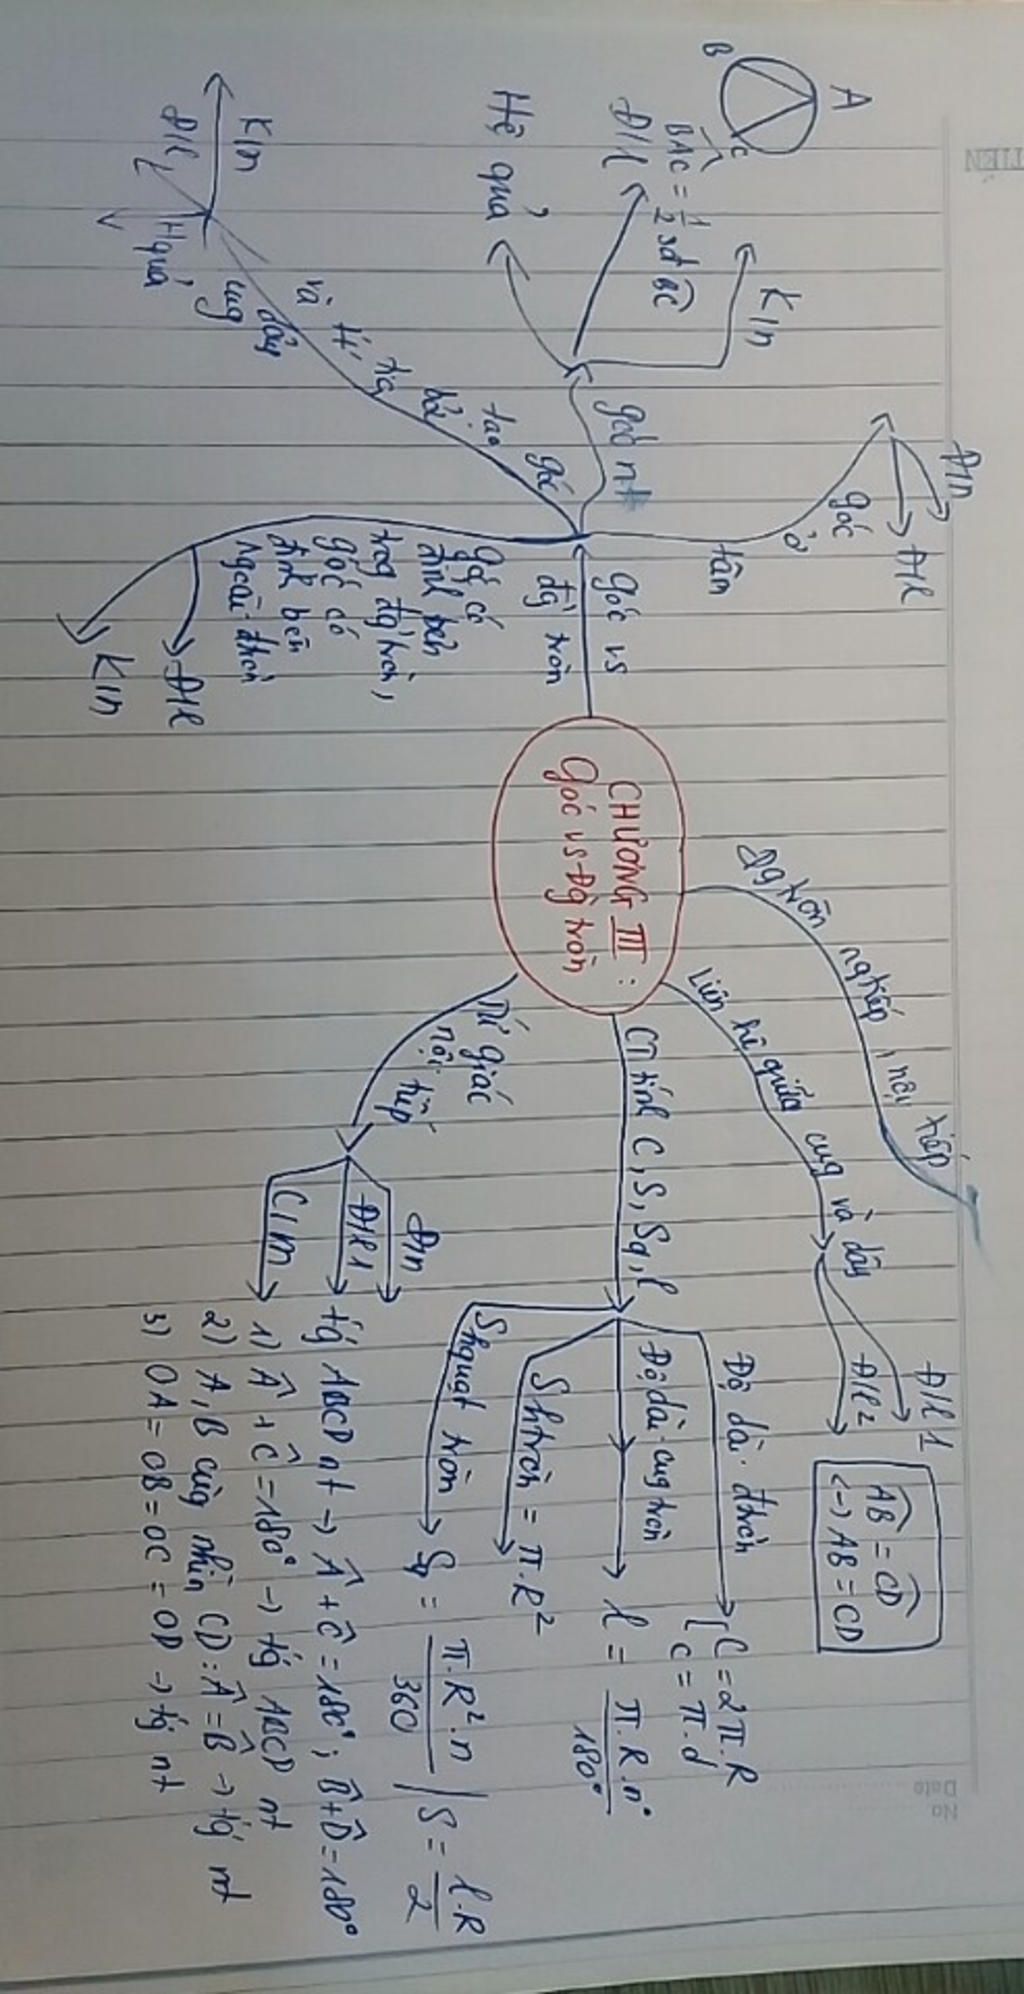 CHƯƠNG III :
Góc vs Đg tròn
Góc vs
đg tròn
góc ở
tâm
Đ/n
Đ/l
góc nt
K/n
Đ/l
BAC = 1/2 sđ BC
A
B
C
Hệ quả
góc
tạo
bởi
tia
tt
và
dây
cung
K/n
Đ/l
Hquả
góc có
đỉnh bên
trog đg tròn,
góc có
đỉnh bên
ngoài đtròn
Đ/l
K/n
Đg tròn ngtiếp, nội tiếp
Liên hệ giữa cug và dây
Đ/l 1
Đ/l 2
AB = CD
<-> AB = CD
CT tính C, S, Sq, l
Độ dài đtròn
C = 2π.R
C = π.d
Độ dài cug tròn
l = π.R.n° / 180°
Shtròn = π.R²
Shquạt tròn
Sq = π.R².n / 360 / S = l.R / 2
Tứ giác
nội tiếp
Đ/n
Đ/l 1
tg ABCD nt -> Â + Ĉ = 180° ; B̂ + D̂ = 180°
C/m
1) Â + Ĉ = 180° -> tg ABCD nt
2) A, B cùng nhìn CD: Â = B̂ -> tg nt
3) OA = OB = OC = OD -> tg nt
TIÊN
No
Date